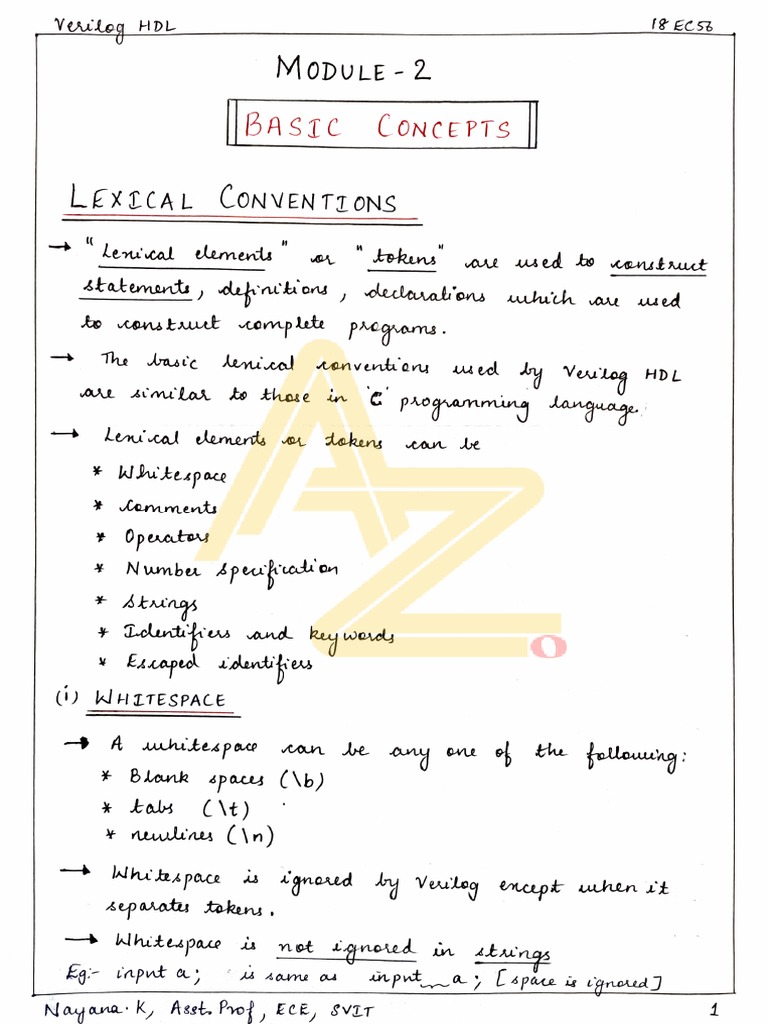 Verilog HDL 18EC56
MODULE-2
BASIC CONCEPTS
LEXICAL CONVENTIONS
→ "Lexical elements" or "tokens" are used to construct
statements, definitions, declarations which are used
to construct complete programs.
→ The basic lexical conventions used by Verilog HDL
are similar to those in 'C' programming language.
→ Lexical elements or tokens can be
* Whitespace
* comments
* Operators
* Number specification
* Strings
* Identifiers and keywords
* Escaped identifiers
(i) WHITESPACE
→ A whitespace can be any one of the following:
* Blank spaces (\b)
* tabs (\t)
* newlines (\n)
→ Whitespace is ignored by Verilog except when it
separates tokens.
→ Whitespace is not ignored in strings
Eg:- input a; is same as input a; [space is ignored]
Nayana.K, Asst.Prof, ECE, SVIT 1
AZ